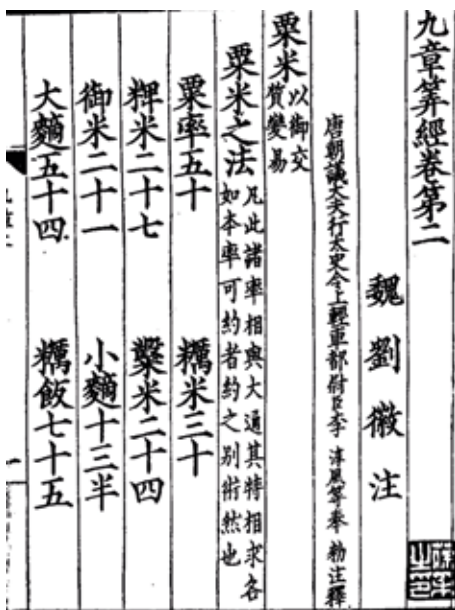 九章筭經卷第二
魏劉徽注
唐朝議大夫行太史令上輕車都尉臣李淳風等奉勑注釋
粟米以御交質變易
粟米之法凡此諸率相與大通其特相求各如本率可約者約之别術然也
粟率五十 糲米三十
粺米二十七 糳米二十四
御米二十一 小䵂十三半
大䵂五十四 糲飯七十五